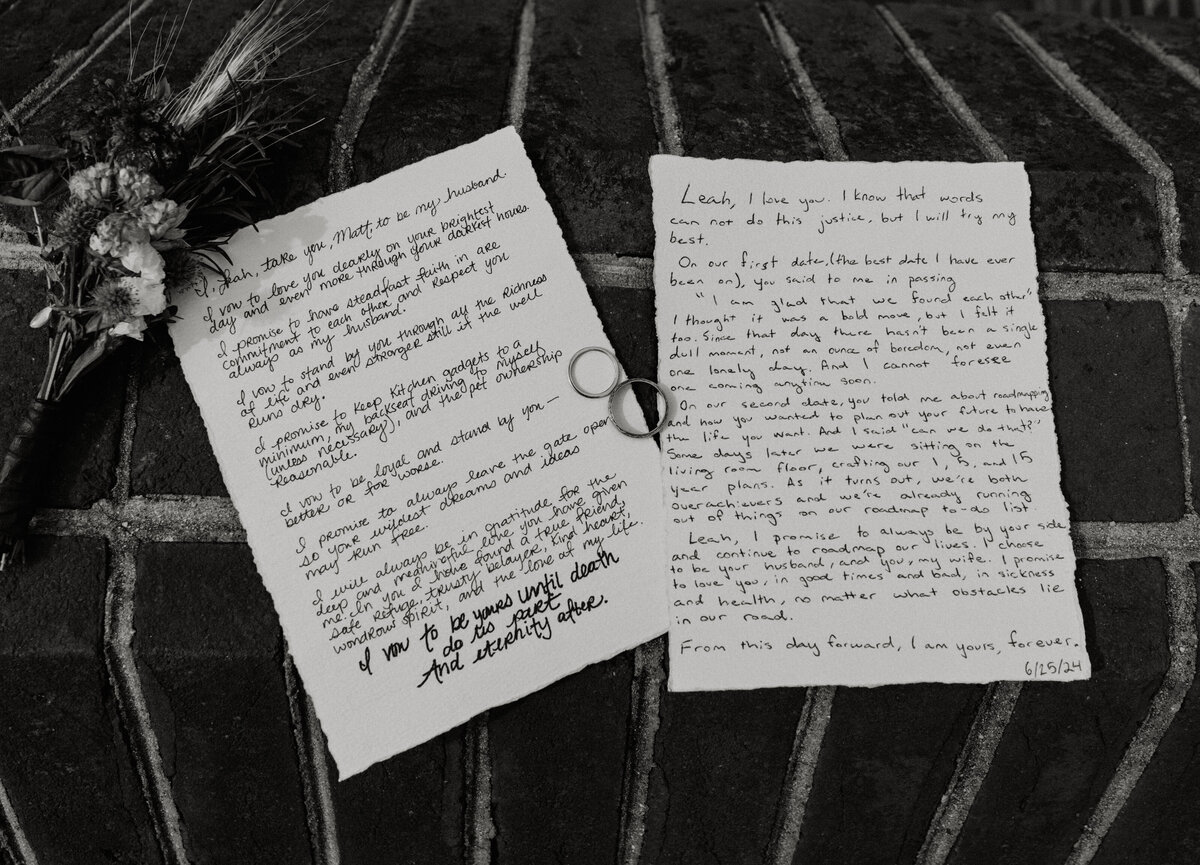 I, Leah, take you, Matt, to be my husband.
I vow to love you dearly on your brightest
day and even more through your darkest hours.
I promise to have steadfast faith in are
commitment to each other and respect you
always as my husband.
I vow to stand by you through all the richness
of life and even stronger still if the well
runs dry.
I promise to keep kitchen gadgets to a
minimum, my backseat driving to myself
(unless necessary), and the pet ownership
reasonable.
I vow to be loyal and stand by you —
better or for worse.
I promise to always leave the gate open
so your wildest dreams and ideas
may run free.
I will always be in gratitude for the
deep and meaningful love you have given
me. In you I have found a true friend,
safe refuge, trusty belayer, kind heart,
wondrous spirit, and the love of my life.
I vow to be yours until death
do us part
And eternity after.
Leah, I love you. I know that words
can not do this justice, but I will try my
best.
On our first date, (the best date I have ever
been on), you said to me in passing
"I am glad that we found each other"
I thought it was a bold move, but I felt it
too. Since that day there hasn't been a single
dull moment, not an ounce of boredom, not even
one lonely day. And I cannot foresee
one coming anytime soon.
On our second date, you told me about roadmapping
and how you wanted to plan out your future to have
the life you want. And I said "can we do that?"
Some days later we were sitting on the
living room floor, crafting our 1, 5, and 15
year plans. As it turns out, we're both
overachievers and we're already running
out of things on our roadmap to-do list.
Leah, I promise to always be by your side
and continue to roadmap our lives. I choose
to be your husband, and you, my wife. I promise
to love you, in good times and bad, in sickness
and health, no matter what obstacles lie
in our road.
From this day forward, I am yours, forever.
6/25/24